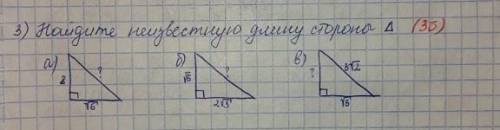 3) Найдите неизвестную длину стороны Δ (3б)
а) ? б) ? в) 3√2
2 √5 ?
√6 2√5 √3